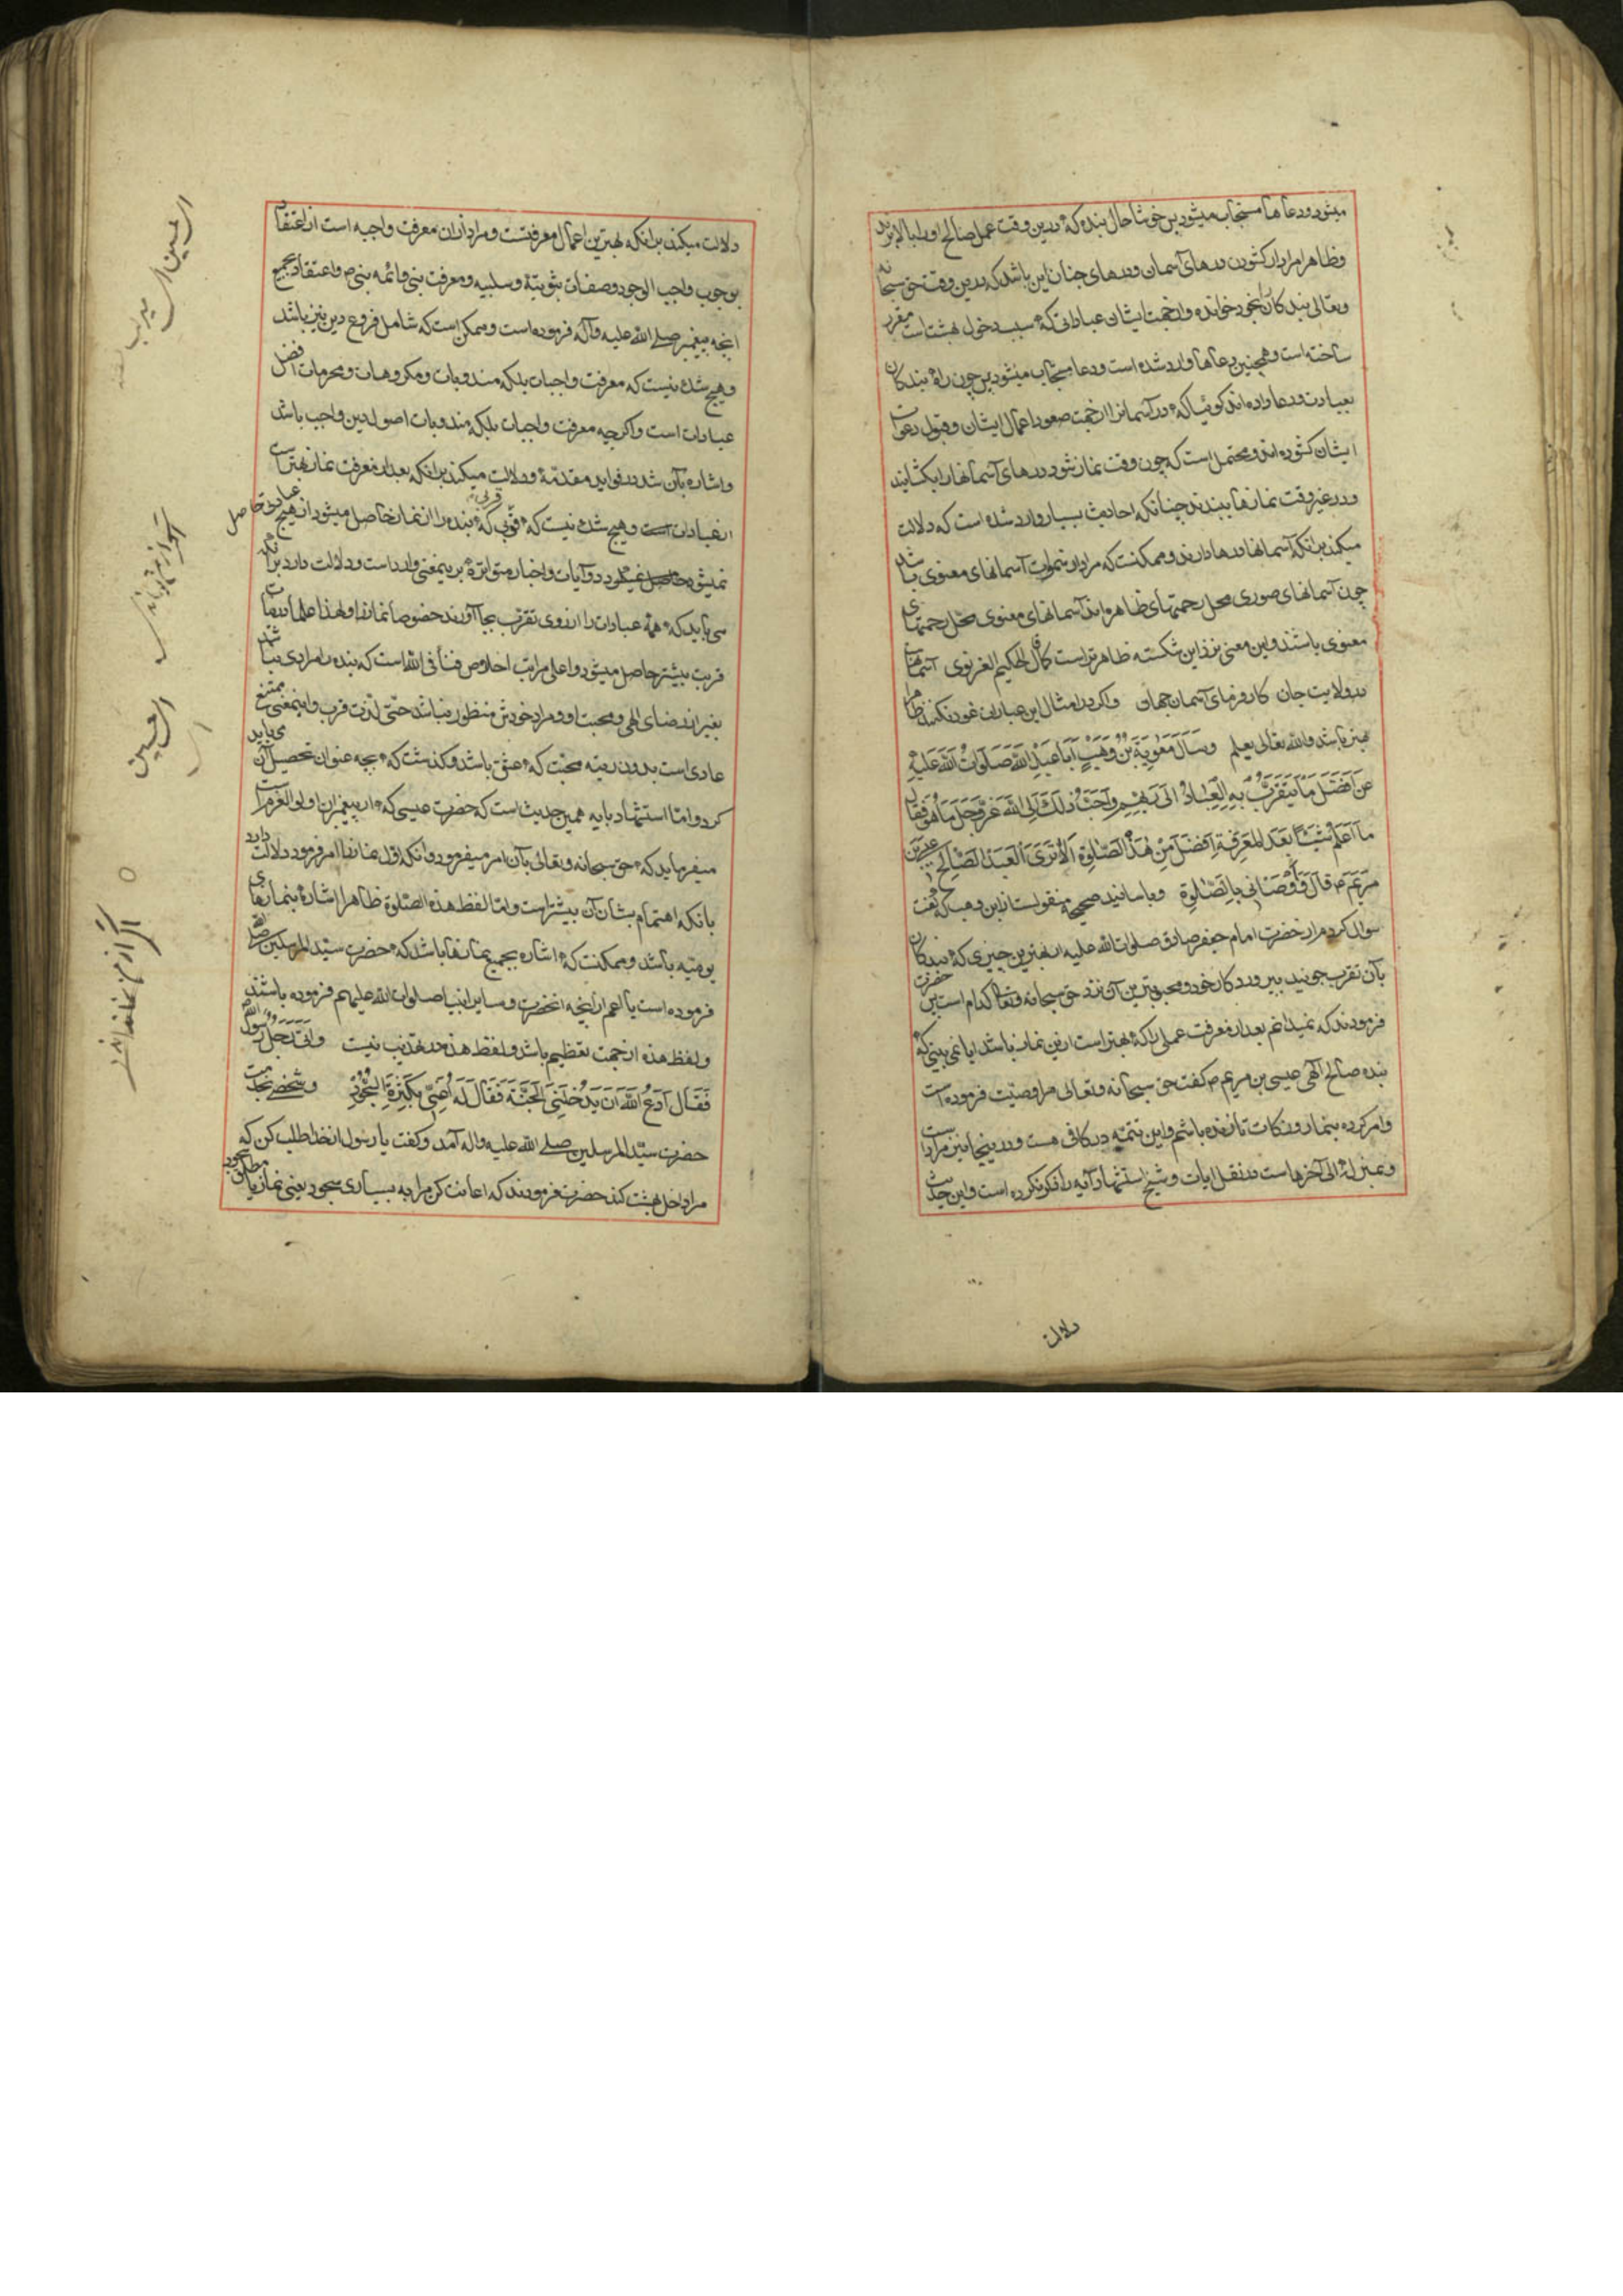 میشود و دعاها مستجاب میشود پس خوشا حال بنده که در این وقت عمل صالح او را بالا برند
و ظاهرا مراد از کشودن درهای آسمان و درهای جنان این باشد که در این وقت حق سبحانه
و تعالی بندکان را بخود خوانده و از جهت ایشان عباداتی که سبب دخول بهشت است مقرر
ساخته است و همچنین دعاها وارد شده است و دعا مستجاب میشود پس چون راه بندکان
بعبادت و دعا داده اند کوئیا که در آسمانرا از جهت صعود اعمال ایشان و قبول دعوات
ایشان کشوده اند و محتمل است که چون وقت نماز شود درهای آسمانها را بکشایند
و در غیر وقت نمازها ببندند چنانکه احادیث بسیار وارد شده است که دلالت
میکند بر انکه آسمانها درها دارند و ممکنست که مراد از سموات آسمانهای معنوی باشد
چون آسمانهای صوری محل رحمتهای ظاهره اند آسمانهای معنوی محل رحمتهای
معنوی باشند و این معنی نزد این شکسته ظاهرتر است کما قال الحکیم الغزنوی آسمانهاست
در ولایت جان کارفرمای آسمان جهان و اکر در امثال این عبارات غور نکنند ظاهرا
بهتر باشد والله تعالی یعلم وَسَأَلَ مَعٰوِیَةُ بْنُ وَهَبٍ اَبٰا عَبْدِ اللّٰهِ صَلَوٰاتُ اللّٰهِ عَلَیْهِ
عَنْ اَفْضَلِ مٰا یَتَقَرَّبُ بِهِ الْعِبٰادُ اِلٰی رَبِّهِمْ وَاَحَبُّ ذٰلِكَ اِلَی اللّٰهِ عَزَّ وَجَلَّ مٰا هُوَ فَقٰالَ
مٰا اَعْلَمُ شَیْئًا بَعْدَ الْمَعْرِفَةِ اَفْضَلَ مِنْ هٰذِهِ الصَّلٰوةِ اَلٰا تَرٰی اَنَّ الْعَبْدَ الصّٰالِحَ عیسی بن
مَرْیَمَ م قٰالَ وَاَوْصٰانی بِالصَّلٰوةِ و باسانید صحیحه منقولست از ابن وهب که گفت
سوال کردم از حضرت امام جعفر صادق صلوات الله علیه از بهترین چیزی که بندکان
بآن تقرب جویند بپروردکار خود و محبوبترین آن نزد حق سبحانه و تعالی کدام است پس حضرت
فرمودند که نمیدانم بعد از معرفت عملی را که بهتر است از این نماز باشد ایا نمی بینی که
بنده صالح الهی عیسی بن مریم م گفت حق سبحانه و تعالی مرا وصیت فرموده است
و امر کرده بنماز و زکات تا زنده باشم و این تتمه در کافی هست و در اینجا نیز مراد است
و بمنزله الی آخرهاست در نقل ایات و شیخ استشهاد آیه را ذکر نکرده است و این حدیث
دلالت
دلالت میکند بر انکه بهترین اعمال معرفتست و مراد از ان معرفت واجبه است از اعتقاد
بوجوب واجب الوجود و صفات ثبوتیة و سلبیه و معرفت نبی و ائمه بنی م و اعتقاد بجمیع
انچه پیغمبر صلی الله علیه و آله فرموده است و ممکن است که شامل فروع دین نیز باشد
و هیچ شك نیست که معرفت واجبات بلکه مندوبات و مکروهات و محرمات افضل
عبادات است و اکرچه معرفت واجبات بلکه مندوبات اصول دین واجب باشد
و اشاره بآن شد در فواید مقدمة و دلالت میکند بر انکه بعد از معرفت نماز بهتر است
از عبادات و هیچ شك نیست که قربی که بنده را از نماز حاصل میشود از هیچ عبادت حاصل
نمیشود و آیات و اخبار متواتره بر این معنی وارد است و دلالت دارد بر انکه
می باید که همه عبادات را از روی تقرب بجا آورند خصوصا نماز را و لهذا علما اند
قربت بیشتر حاصل میشود و اعلی مراتب اخلاص فنا فی الله است که بنده را مرادی نباشد
بغیر از رضای الهی و محبت او و مراد خودش منظور نباشد حتی لذت قرب و اینمعنی ممتنع
عادی است بدون رتبه محبت که عشق باشد و کذشت که بچه عنوان تحصیل آن می باید
کرد و اما استشهاد بآیه همین جدیث است که حضرت عیسی که از پیغمبران اولو العزم است
میفرماید که حق سبحانه و تعالی بآن امر میفرمود و انکه اول نماز را امر فرمود دلالت دارد
بانکه اهتمام بشان آن بیشتر است و اما لفظ هذه الصلوة ظاهرا اشاره بنمازهای
یومیه باشد و ممکنست که اشاره بجمیع نمازها باشد که حضرت سید المرسلین صلی الله
فرموده است یا اعم از انچه انحضرت و سایر انبیا صلوات الله علیهم فرموده باشند
و لفظ هذه از جهت تعظیم باشد و لفظ هذه در تهذیب نیست وَاَتٰی رَجُلٌ رَسُولَ اللّٰهِ
فَقٰالَ اُدْعُ اللّٰهَ اَنْ یُدْخِلَنِیَ الْجَنَّةَ فَقٰالَ لَهُ اَعِنّی بِکَثْرَةِ السُّجُودِ و شخصی بخدمت
حضرت سید المرسلین صلی الله علیه و اله آمد و کفت یا رسول از خدا طلب کن که
مرا داخل بهشت کند حضرت فرمودند که اعانت کن مرا به بسیاری سجود یعنی نماز یا مطلق سجود